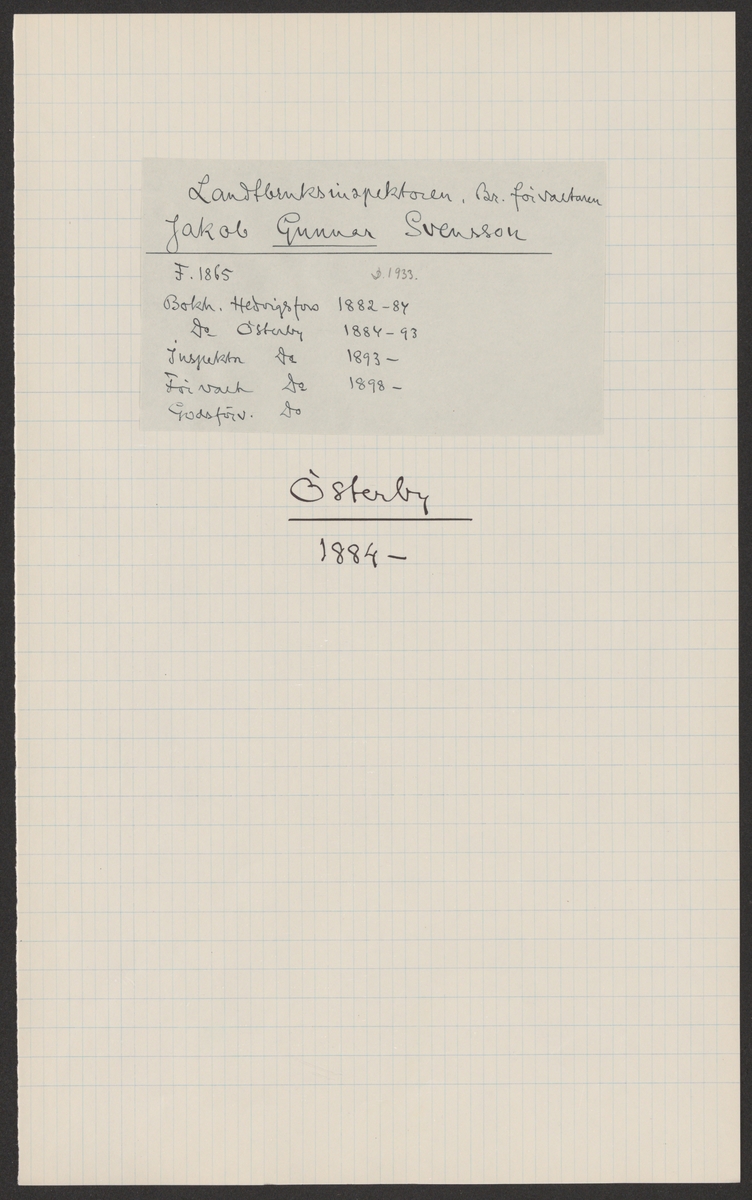 Landtbruksinspektoren, Br. förvaltaren
Jakob Gunnar Svensson
F. 1865 d. 1933.
Bokh. Hedvigsfors 1882-84
Do Österby 1884-93
Inspektor Do 1893-
Förvalt Do 1898-
Godsförv. Do
Österby
1884-